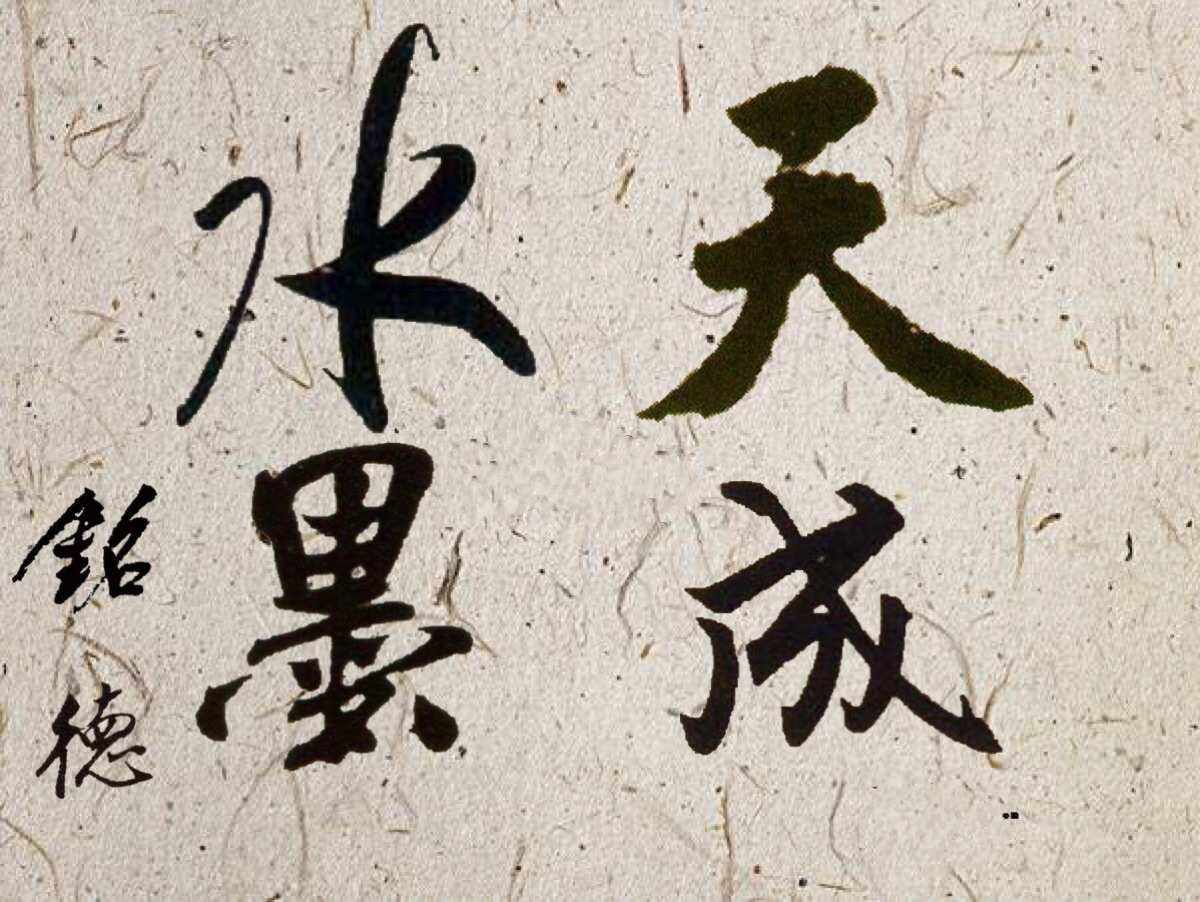 天成
水墨
銘德